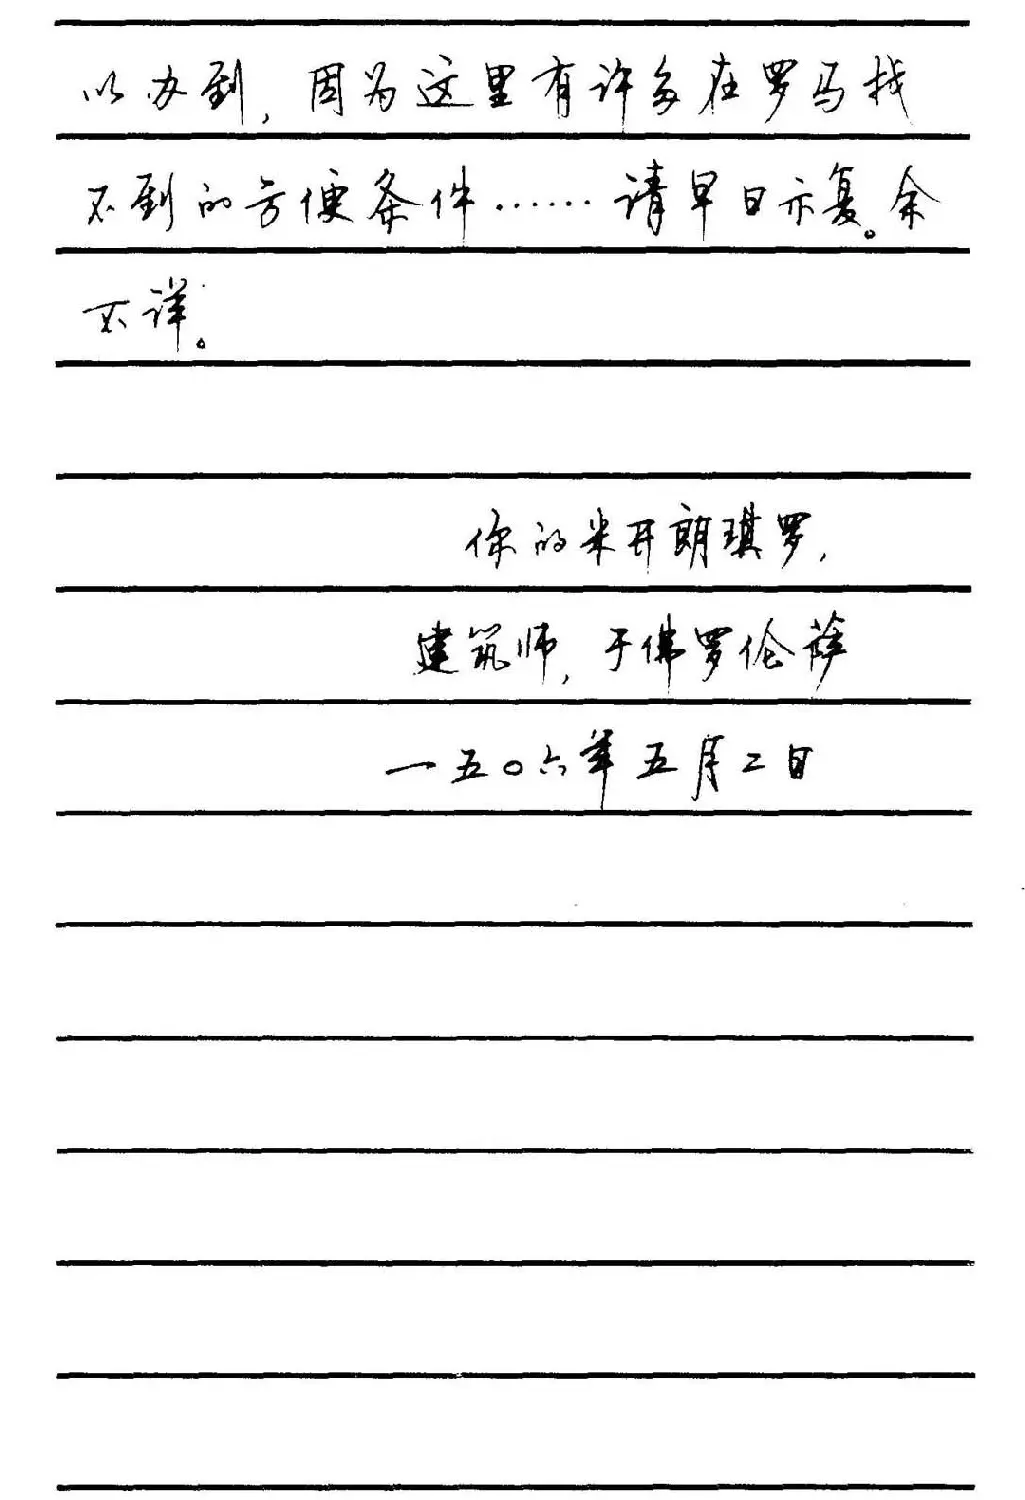 以办到，因为这里有许多在罗马找
不到的方便条件……请早日示复。余
不详。
你的米开朗琪罗，
建筑师，于佛罗伦萨
一五〇六年五月二日